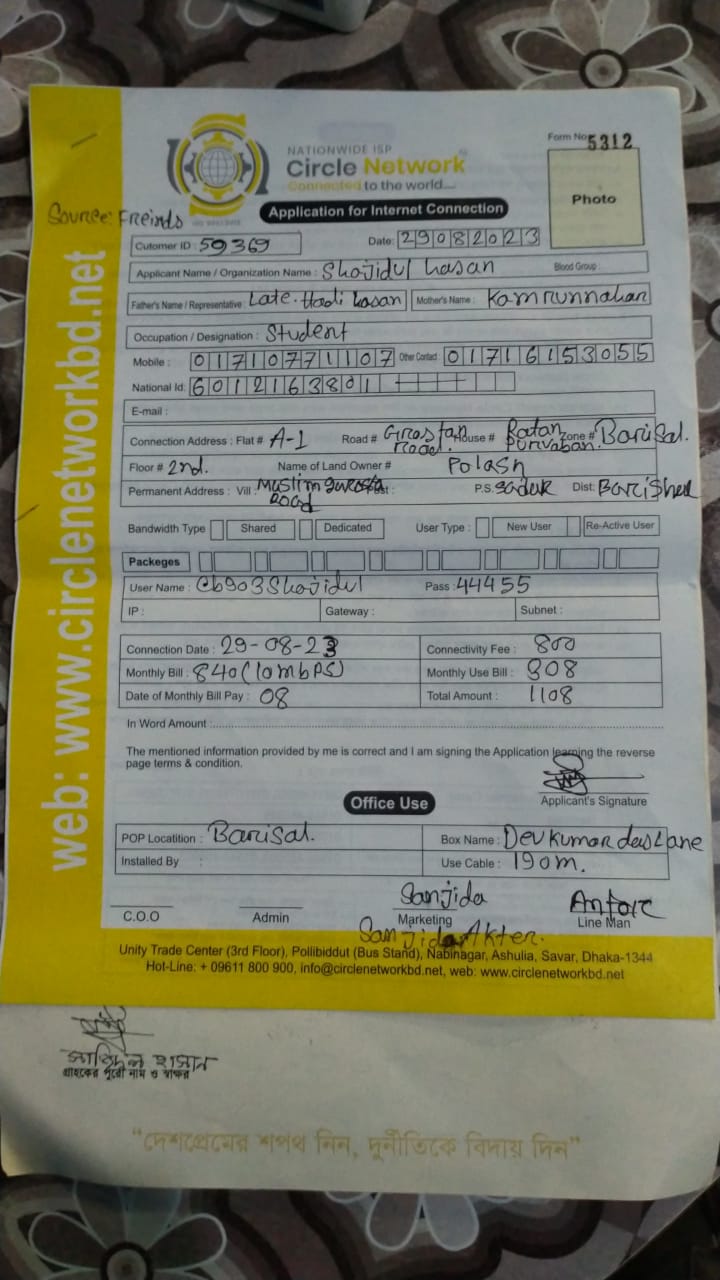 Form No 5312
NATIONWIDE ISP
Circle Network
Connected to the world....
Photo
Source: Freinds
Application for Internet Connection
Cutomer ID : 59369 Date: 29082023
Applicant Name / Organization Name : Shajidul hasan Blood Group :
Father's Name / Representative : Late. Hadi hasan Mother's Name : Kamrunnahar
Occupation / Designation : Student
Mobile : 01710771107 Other Contact : 01716153055
National Id: 6012163801
E-mail :
Connection Address : Flat # A-1 Road # Grostan Road. House # Ratan Zone # Barisal.
Floor # 2nd. Name of Land Owner # Polash
Permanent Address : Vill : Muslim Road Post : P.S. Sadar Dist: Barishal
Bandwidth Type Shared Dedicated User Type : New User Re-Active User
Packeges
User Name : Cb903Shajidul Pass : 44455
IP : Gateway : Subnet :
Connection Date : 29-08-23 Connectivity Fee : 800
Monthly Bill : 840(10mbPS) Monthly Use Bill : 308
Date of Monthly Bill Pay : 08 Total Amount : 1108
In Word Amount :
The mentioned information provided by me is correct and I am signing the Application learning the reverse
page terms & condition.
Applicant's Signature
Office Use
POP Locatition : Barisal. Box Name : Dev Kumar das Lane
Installed By : Use Cable : 190m.
Sanjida Antor
C.O.O Admin Marketing Line Man
Sanjida Akter.
Unity Trade Center (3rd Floor), Pollibiddut (Bus Stand), Nabinagar, Ashulia, Savar, Dhaka-1344
Hot-Line: + 09611 800 900, info@circlenetworkbd.net, web: www.circlenetworkbd.net
web: www.circlenetworkbd.net
সাজিদুল হাসান
গ্রাহকের পুরো নাম ও স্বাক্ষর
“দেশপ্রেমের শপথ নিন, দুর্নীতিকে বিদায় দিন”